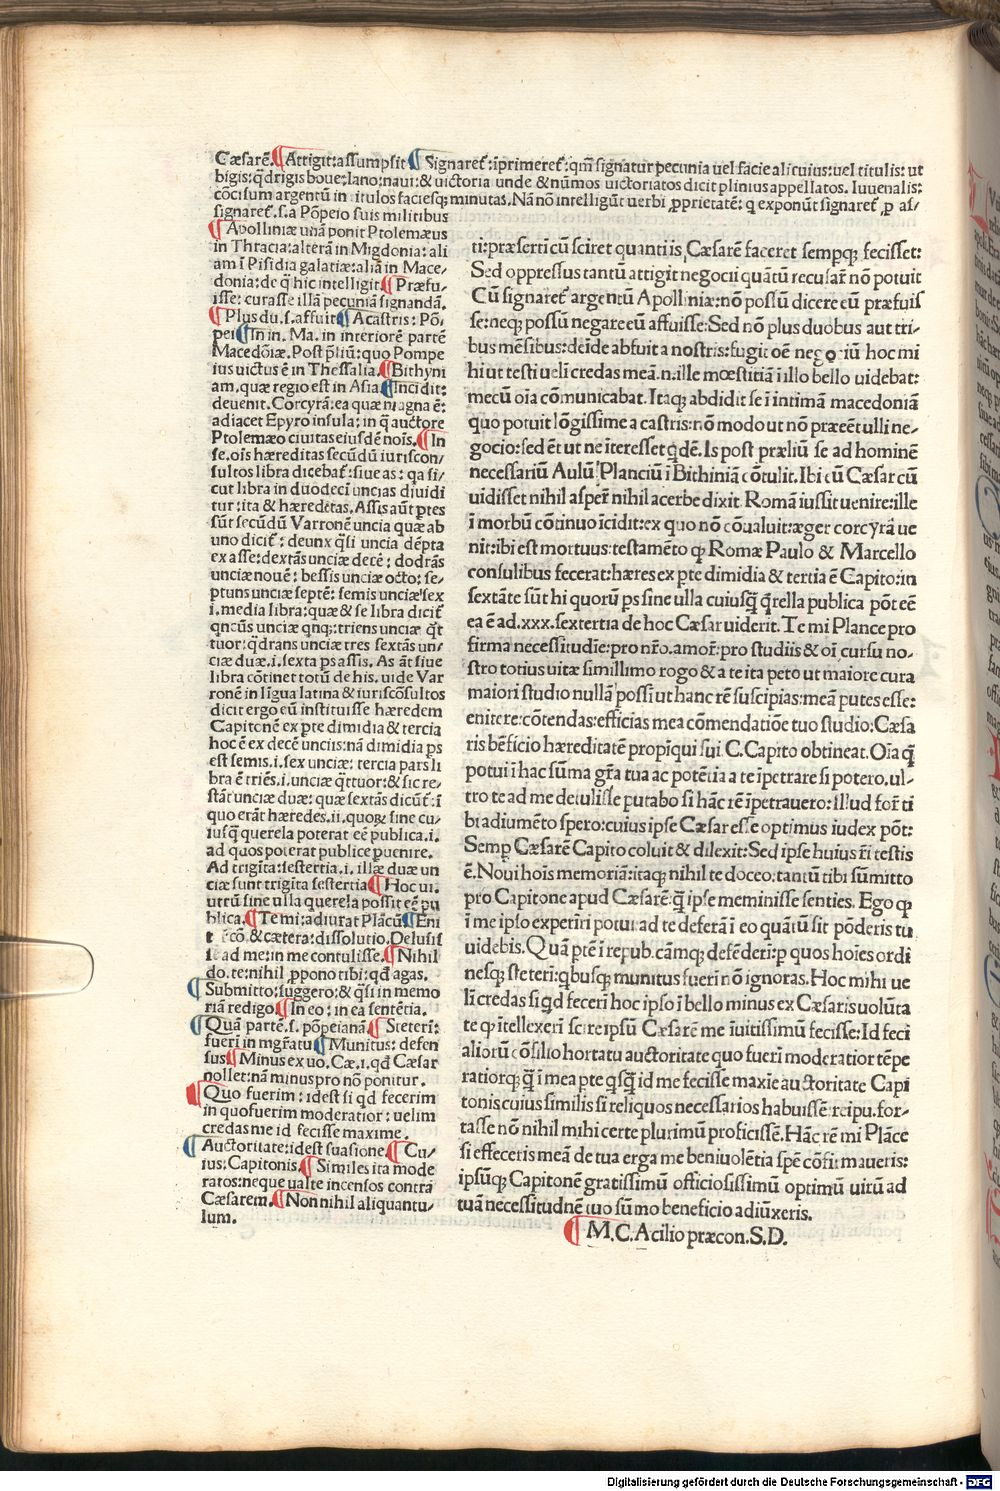 Cæsarē. Attigit: assumpsit Signaret᷑: īprimeret᷑: qm̄ signatur pecunia uel facie alicuius: uel titulis: ut
bigis: q̄drigis boue: Iano: naui: & uictoria unde & nūmos uictoriatos dicit plinius appellatos. Iuuenalis:
cōcisum argentū in titulos faciesq; minutas. Nā nō intelligūt uerbi ꝓprietatē: q exponūt signaret᷑ ꝓ as/
signaret᷑. s. a Pōpeio suis militibus
Apolliniæ unā ponit Ptolemæus
in Thracia: alterā in Migdonia: ali
am ī Pisidia galatiæ: aliā in Mace/
donia: de q̄ hic intelligit Præfu/
isse: curasse illā pecuniā signandā.
Plus du. s. affuit A castris: Pō/
pei In in. Ma. in interiorē partē
Macedōiæ. Post p̄liū: quo Pompe
ius uictus ē in Thessalia. Bithyni
am, quæ regio est in Asia Incidit:
deuenit. Corcyrā: ea quæ magna ē:
adiacet Epyro insula: in q̄ auctore
Ptolemæo ciuitas eiusdē nois̄. In
se. ois̄ hæreditas secūdū iuriscon/
sultos libra dicebat᷑: siue as: qa si/
cut libra in duodeci uncias diuidi
tur: ita & hæreditas. Assis aūt ꝑtes
sūt secūdū Varronē uncia quæ ab
uno dicit᷑: deunx q̄si uncia dēpta
ex asse: dextās unciæ decē: dodrās
unciæ nouē: bessis unciæ octo: se/
ptuns unciæ septē: semis unciæ sex
i. media libra: quæ & se libra dicit᷑
qncūs unciæ qnq;: triens unciæ q̄t
tuor: q̄drans unciæ tres sextās un/
ciæ duæ. i. sexta ꝑs assis. As āt siue
libra cōtinet totū de his. uide Var
ronē in līgua latina & iuriscōsultos
dicit ergo eū instituisse hæredem
Capitonē ex ꝑte dimidia & tercia
hoc ē ex decē unciis: nā dimidia ꝑs
est semis. i. sex unciæ: tercia pars li
bra ē triēs. i. unciæ q̄ttuor: & sic re/
stāt unciæ duæ: quæ sextās dicūt᷑: ī
quo erāt hæredes. ii. quoꝝ sine cu/
iusq̄ querela poterat eē publica. i.
ad quos poterat publice puenire.
Ad trigīta: sestertia. i. illæ duæ un
ciæ sunt trigīta sestertia Hoc ui.
utrū sine ulla querela possit eē pu
blica. Te mi: adiurat Plācū Eni
t cō. & cætera: dissolutio. Delusis
s ad me: in me contulisse. Nihil
do. te: nihil ꝓpono tibi: qd̄ agas.
Submitto: suggero: & q̄si in memo
riā redigo In eo: in ea sentētia.
Quā partē. s. pōpeianā Steteri:
fueri in mgr̄atu Munitus: defen
sus Minus ex uo. Cæ. i. qd̄ Cæsar
nollet: nā minus pro nō ponitur.
Quo fuerim: idest si qd̄ fecerim
in quo fuerim moderatior: uelim
credas me id fecisse maxime.
Auctoritate: idest suasione Cu/
ius: Capitonis. Similes ita mode
ratos: neque ualte incensos contra
Cæsarem. Non nihil aliquantu/
lum.
tu: præserti cū sciret quanti is, Cæsarē faceret semꝑq; fecisset:
Sed oppressus tantū attigit negocii quātū recusar̄ nō potuit
Cū signaret᷑ argentū Apolliniæ: nō possū dicere eū præfuis
se: neq; possū negare eū affuisse: Sed nō plus duobus aut tri/
bus mēsibus: deīde abfuit a nostris: fugit oē negociū hoc mi
hi ut testi ueli credas meā. n. ille mœstitiā ī illo bello uidebat:
mecū oia cōmunicabat. Itaq; abdidit se ī intimā macedoniā
quo potuit lōgissime a castris: nō modo ut nō præēet ulli ne/
gocio: sed ēt ut ne īteresset q̄dē. Is post præliū se ad hominē
necessariū Aulū Planciū ī Bithiniā cōtulit. Ibi eū Cæsar cū
uidisset nihil asper᷑ nihil acerbe dixit. Romā iussit uenire: ille
ī morbū cōtinuo īcidit: ex quo nō cōualuit: æger corcyrā ue
nit: ibi est mortuus: testamēto qꝫ Romæ Paulo & Marcello
consulibus fecerat: hæres ex ꝑte dimidia & tertia ē Capito: in
sextāte sūt hi quorū ꝑs sine ulla cuiusq̄ q̄rella publica pōt eē
ea ē ad. xxx. sextertia de hoc Cæsar uiderit. Te mi Plance pro
firma necessitudīe: pro nr̄o. amor᷑: pro studiis & oī cursu no/
stro totius uitæ simillimo rogo & a te ita peto ut maiore cura
maiori studio nullā possi ut hanc rē suscipias: meā putes esse:
enitere: cōtendas: efficias mea cōmendatiōe tuo studio: Cæsa
ris bēficio hæreditatē propīqui sui C. Capito obtineat. Oīa q̄
potui ī hac sūma gr̄a tua ac potētia a te īpetrare si potero, ul/
tro te ad me detulisse putabo si hāc rē īpetrauero: Illud for᷑ ti
bi adiumēto spero: cuius ipse Cæsar esse optimus iudex pōt:
Semꝑ Cæsarē Capito coluit & dilexit: Sed ipse huius r̄i testis
ē. Noui hois̄ memoriā: itaq; nihil te doceo: tantū tibi sūmitto
pro Capitone apud Cæsarē: q̄ ipse meminisse senties. Ego qꝫ
ī me ipso experīri potui: ad te deferā ī eo quātū sit pōderis tu
uidebis. Quā ꝑtē ī repub. cāmq; defēderi: ꝑ quos hoīes ordi
nesq; steteri: qbusq; munitus fueri nō ignoras. Hoc mihi ue
li credas si qd fecerī hoc ipso ī bello minus ex Cæsaris uolūta
te qꝫ ītellexeri scire ipsū Cæsarē me īuitissimū fecisse: Id feci
aliorū cōsilio hortatu auctoritate quo fueri moderatior tēpe
ratiorq; q̄ ī mea ꝑte qsq̄ id me fecisse maxīe auctoritate Capi
tonis cuius similis si reliquos necessarios habuissē: reipu. for/
tasse nō nihil mihi certe plurimū proficissē. Hāc rē mi Plāce
si effeceris meā de tua erga me beniuolētia spē cōfirmaueris:
ipsūq; Capitonē gratissimū officiosissimū optimū uirū ad
tuā necessitudnē tuo sūmo beneficio adiūxeris.
M. C. Acilio præcon. S. D.
Digitalisierung gefördert durch die Deutsche Forschungsgemeinschaft - DFG